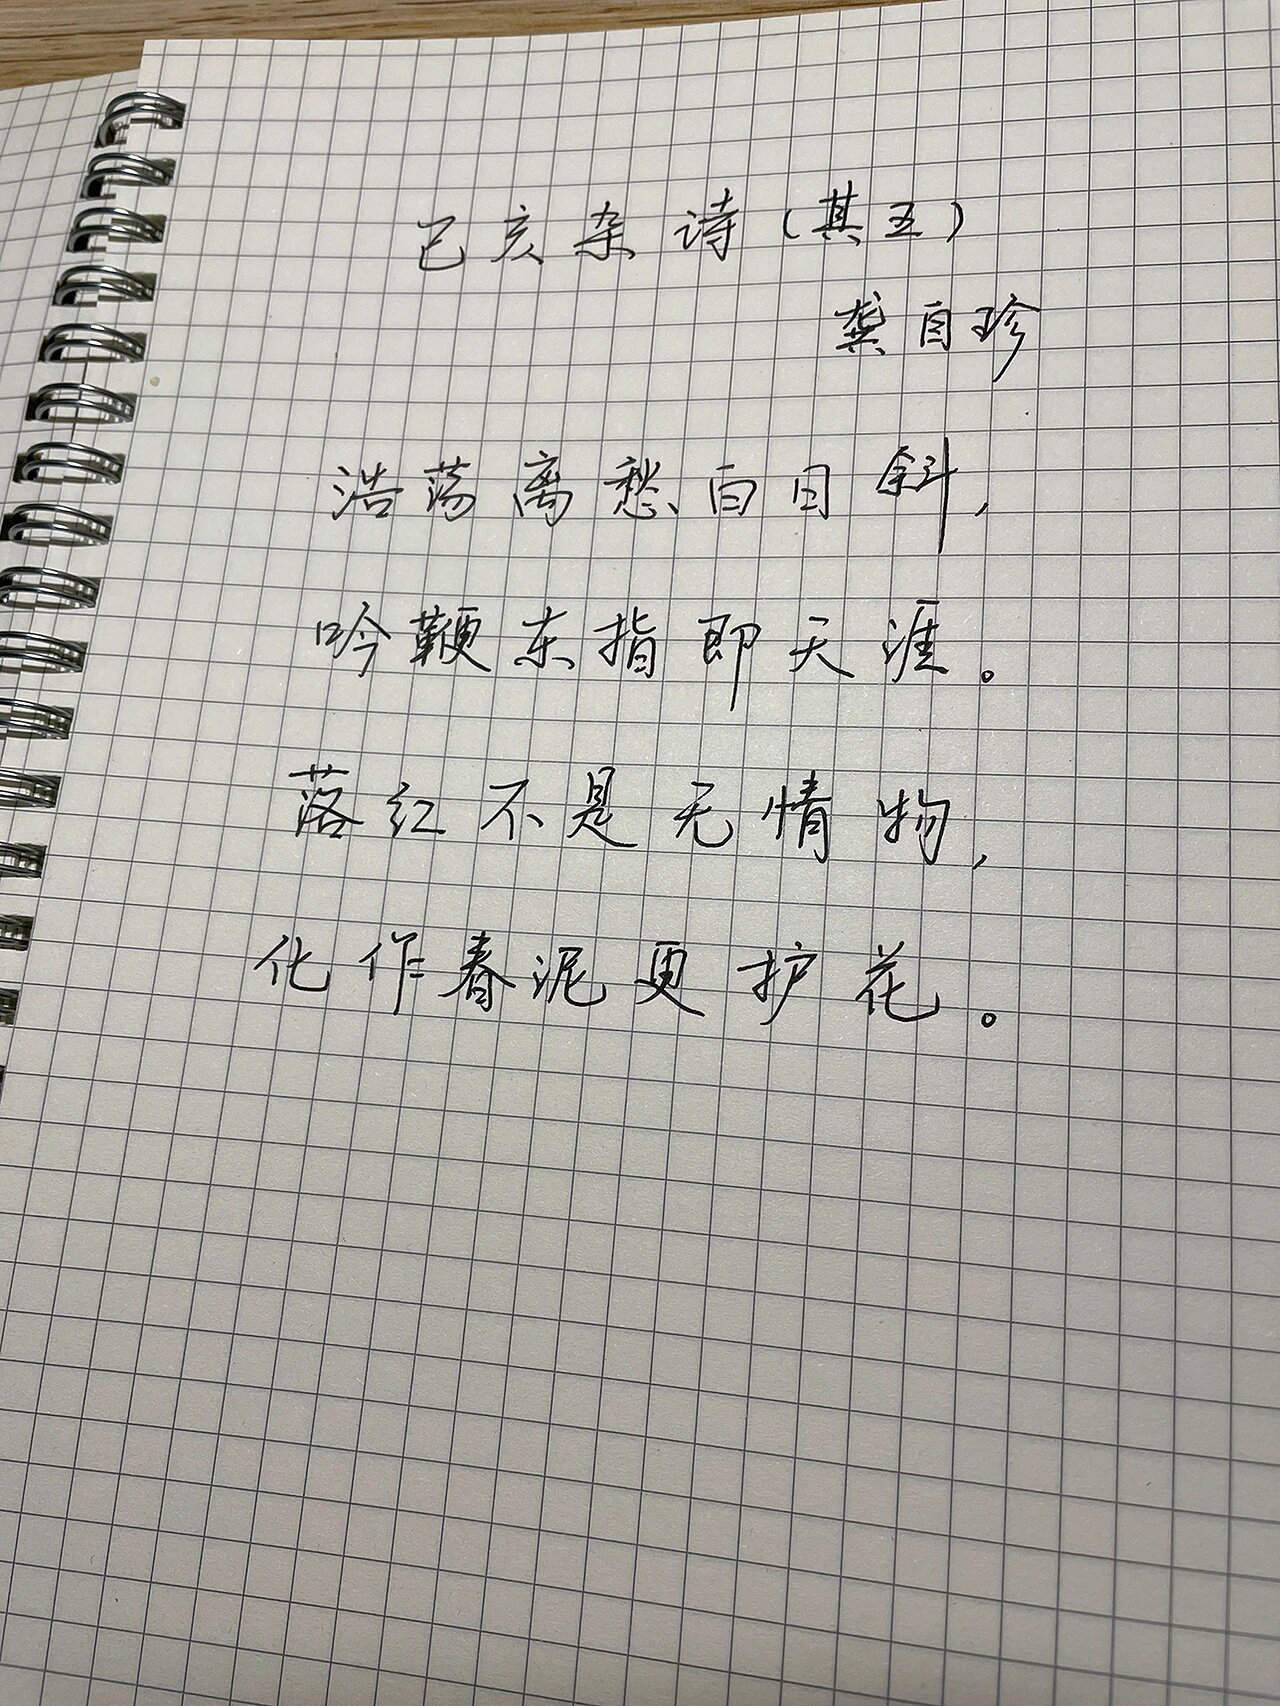 己亥杂诗(其五)
龚自珍
浩荡离愁白日斜,
吟鞭东指即天涯。
落红不是无情物,
化作春泥更护花。